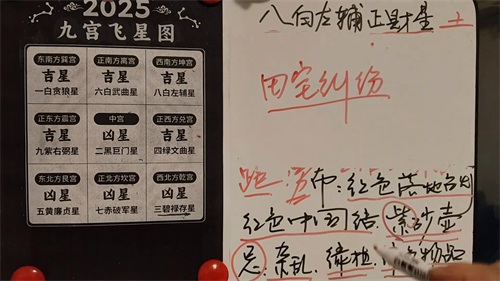 2025
九宫飞星图
东南方巽宫 正南方离宫 西南方坤宫
吉星 吉星 吉星
一白贪狼星 六白武曲星 八白左辅星
正东方震宫 中宫 正西方兑宫
吉星 凶星 吉星
九紫右弼星 二黑巨门星 四绿文曲星
东北方艮宫 正北方坎宫 西北方乾宫
凶星 凶星 凶星
五黄廉贞星 七赤破军星 三碧禄存星
八白左辅正财星 土
田宅纠纷
布:红色
红色中国结 紫砂壶
忌:杂乱 绿植 物品